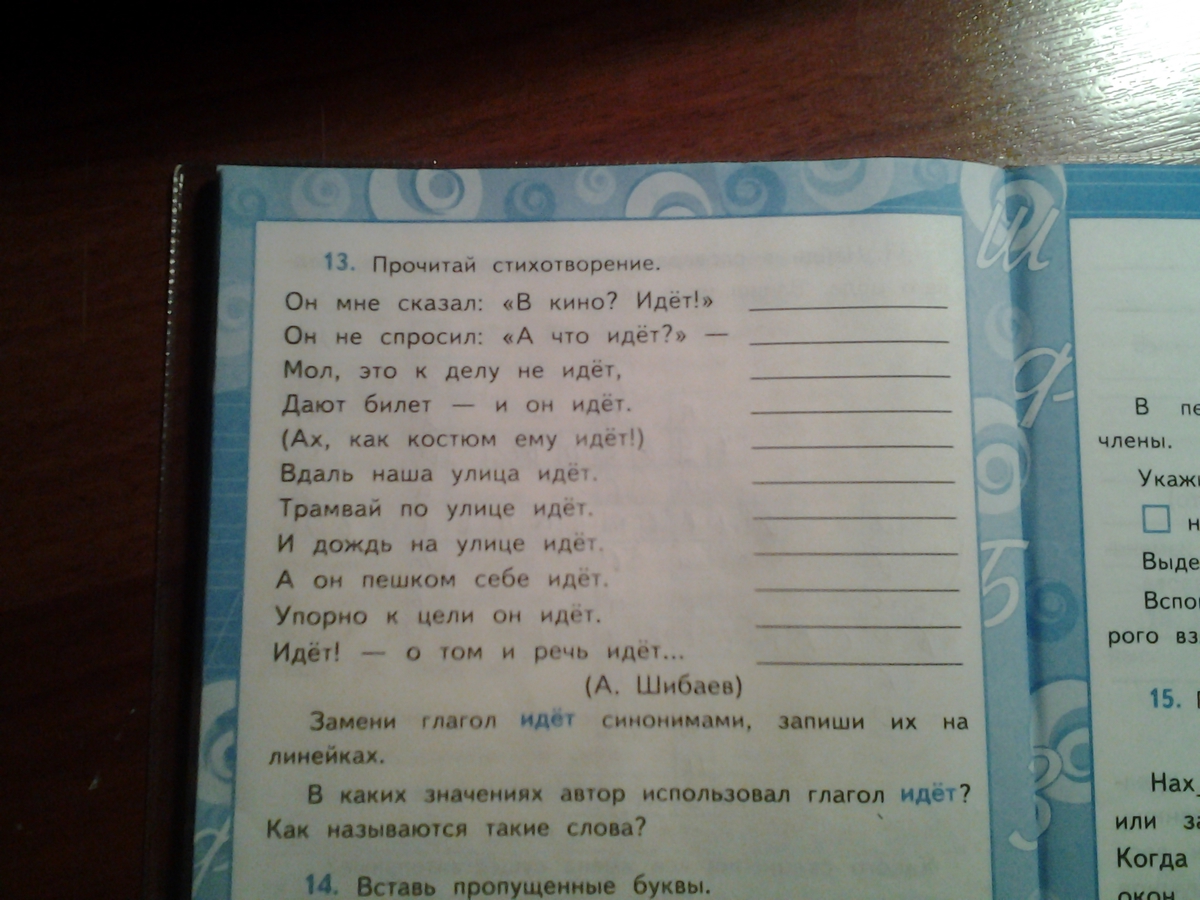 13. Прочитай стихотворение.
Он мне сказал: «В кино? Идёт!»
Он не спросил: «А что идёт?» —
Мол, это к делу не идёт,
Дают билет — и он идёт.
(Ах, как костюм ему идёт!)
Вдаль наша улица идёт.
Трамвай по улице идёт.
И дождь на улице идёт.
А он пешком себе идёт.
Упорно к цели он идёт.
Идёт! — о том и речь идёт...
(А. Шибаев)
Замени глагол идёт синонимами, запиши их на
линейках.
В каких значениях автор использовал глагол идёт?
Как называются такие слова?
14. Вставь пропущенные буквы.
Ш
ф
Б
З
В
члены.
15.
или
Когда
окон